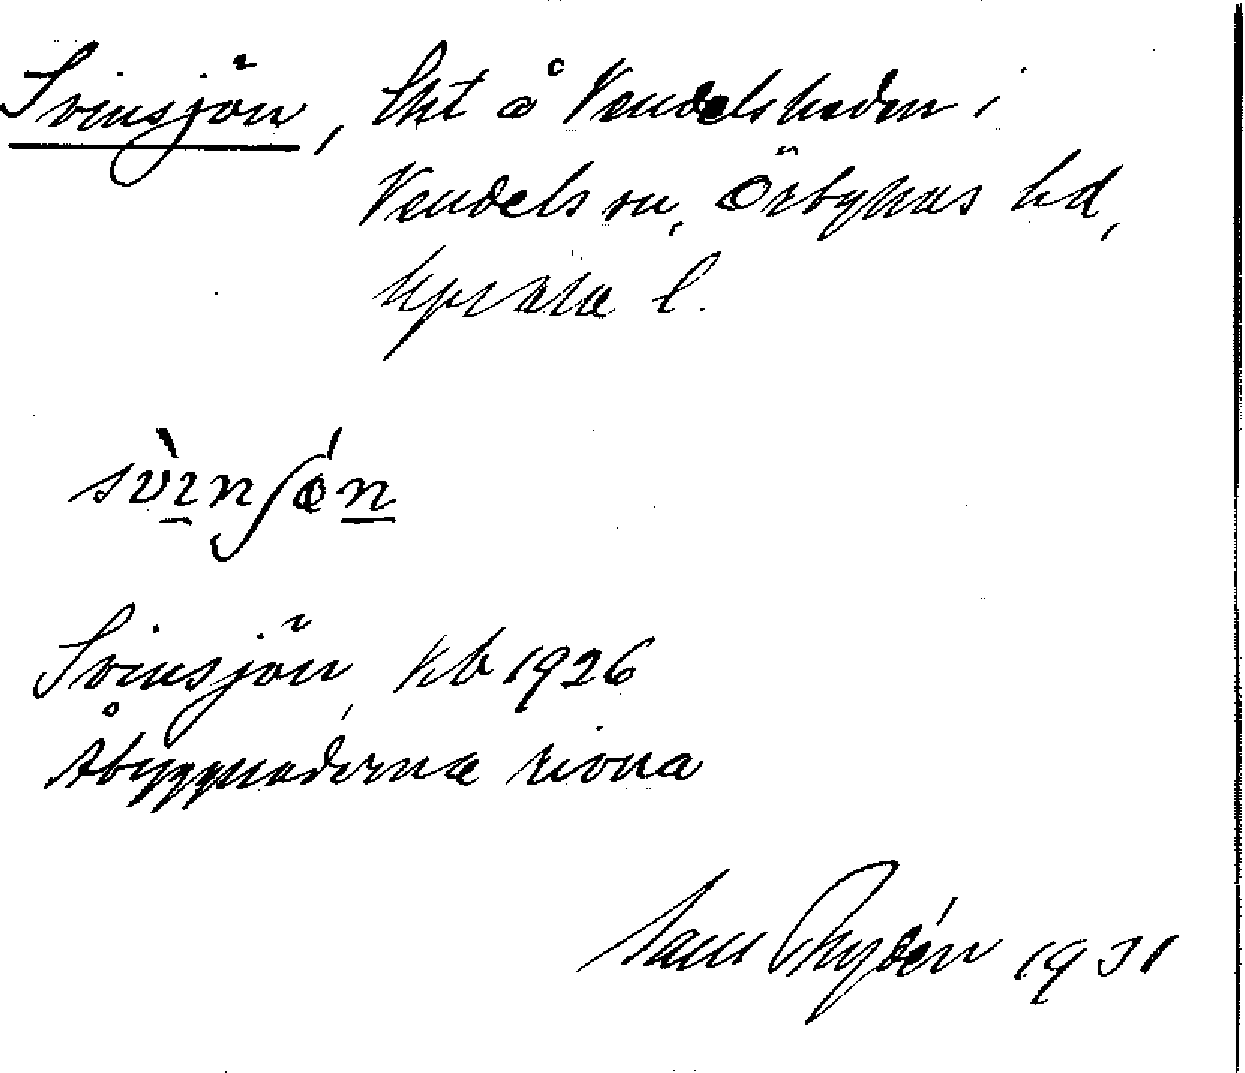 Svinsjön, lht å Vendelsheden i
Vendels sn, Örbyhus hd,
Uppsala l.
svìnʃøń
Svinsjön kb 1926
Åbyggnaderna rivna
Sam Rydén 1931